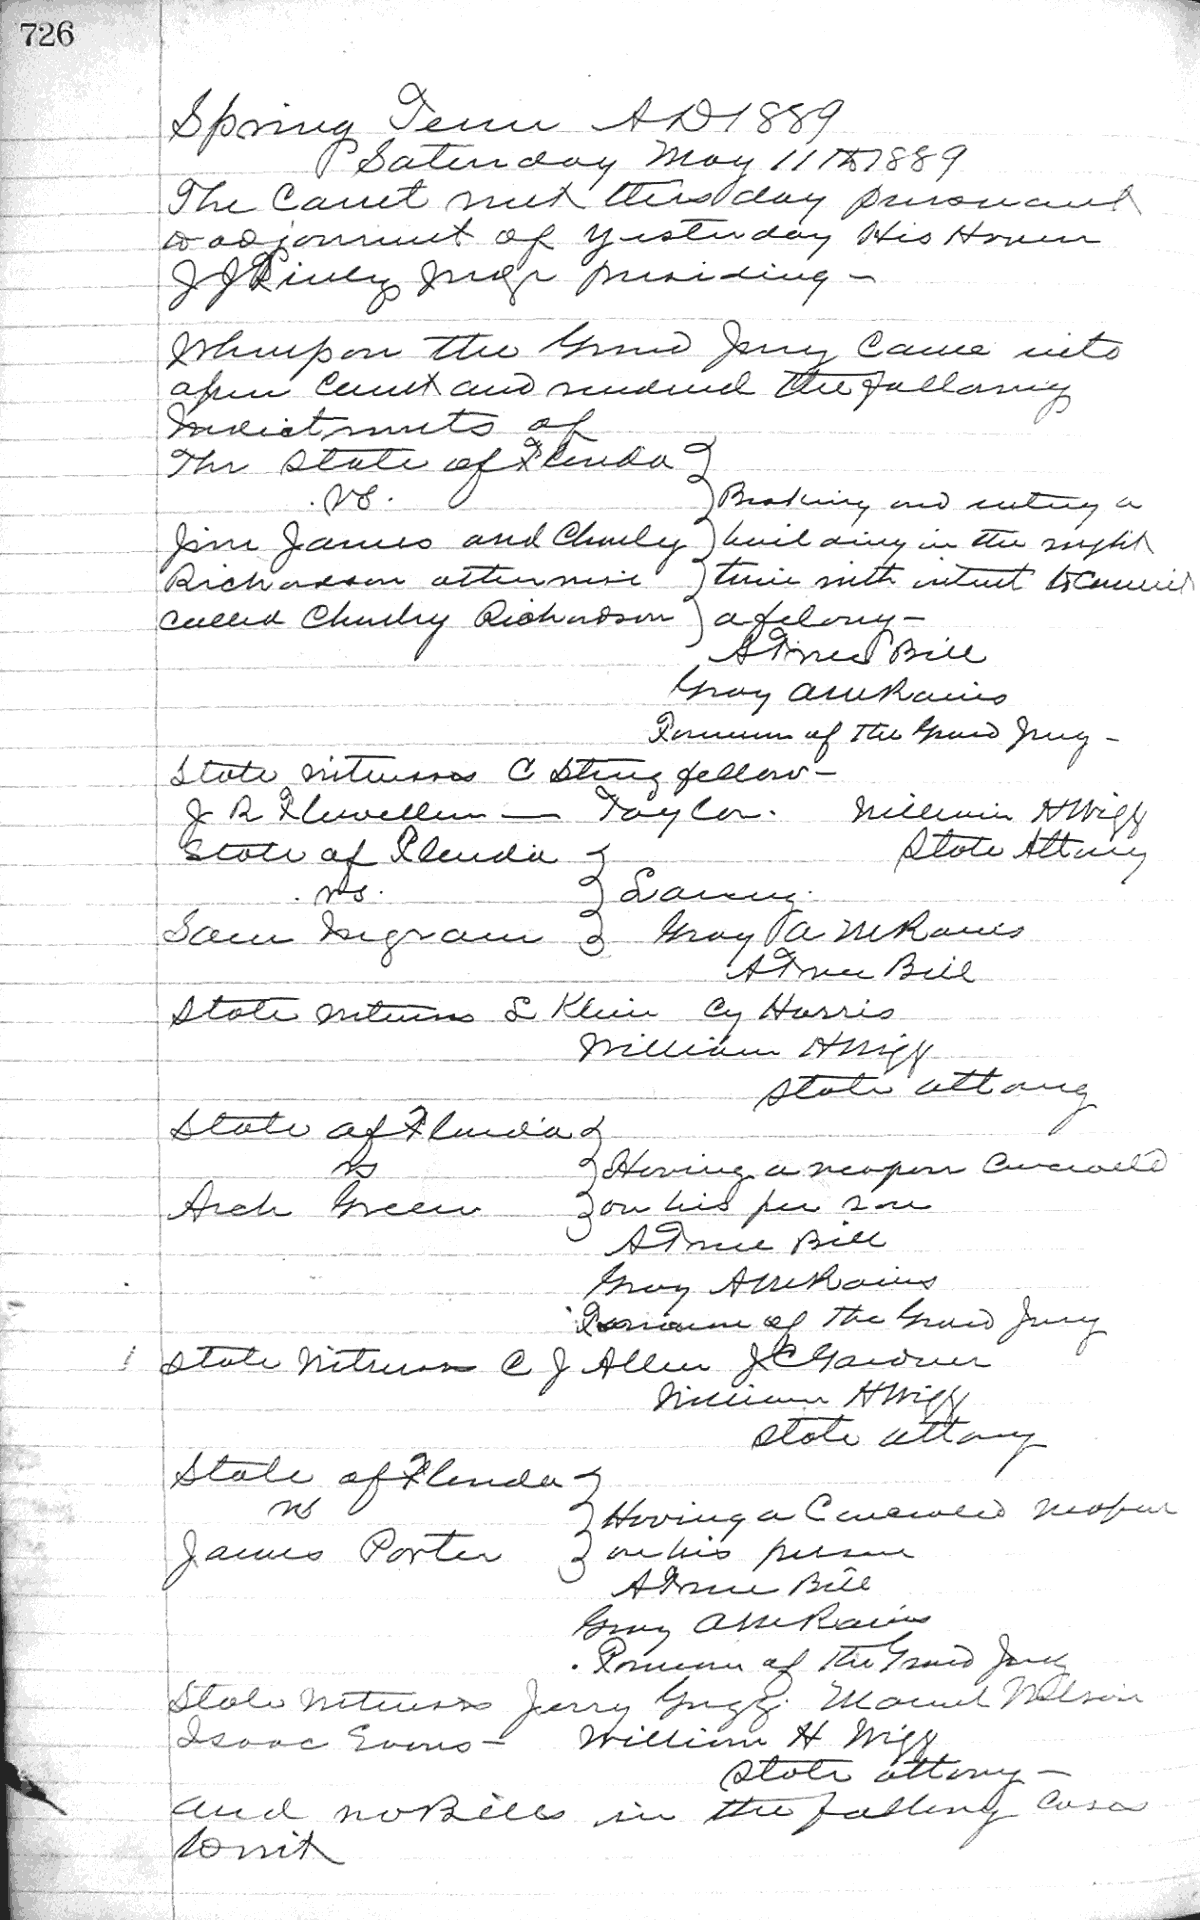 726
Spring Term A D 1889
Saturday May 11th 1889
The Court met this day pursuant
to adjornment of yesterday His Honor
J J Finley Judge presiding -
Whereupon the Grand Jury came into
open Court and rendered the following
Indictments of
The State of Florida
vs.
Breaking and entering a
Jim James and Charley
building in the night
Richardson otherwise
time with intent to commit
called Charley Richardson
a felony -
A True Bill
Gray A McRaines
Foreman of the Grand Jury -
State Witnesses C Stringfellow -
J R Flewellen — Taylor. William H Wigg
State Attorny
State of Florida
vs.
Larceny.
Sam Ingram
Gray A McRaines
A True Bill
State Witness L Klein Cy Harris
William H Wigg
State attorny
State of Florida
vs
Having a weapon concealed
Arch Green
on his person
A True Bill
Gray A McRaines
Foreman of the Grand Jury
State Witness C J Allen J C Gardner
William H Wigg
State attorny
State of Florida
vs
Having a Concealed weapon
James Porter
on his person
A True Bill
Gray A McRaines
Foreman of the Grand Jury
State Witnesses Jerry Grigg. Manuel Wilson
Isaac Evans - William H Wigg
State attorny -
and no Bills in the folling cases
to wit